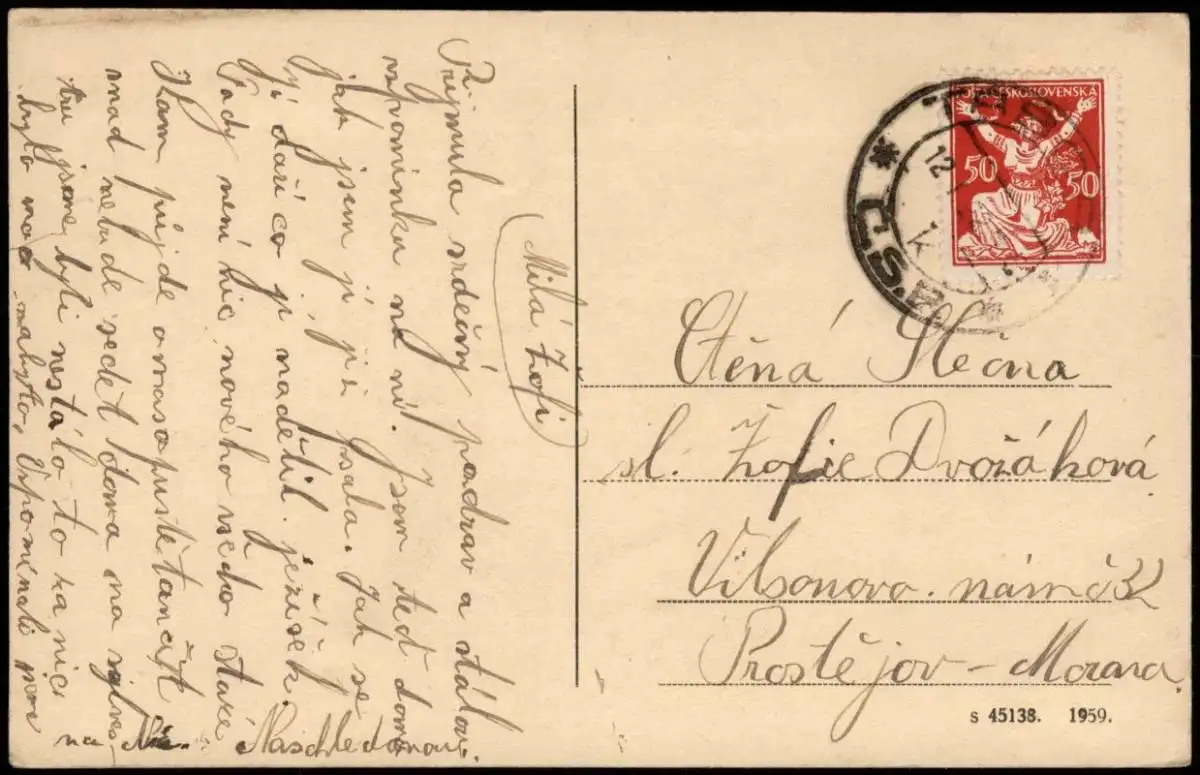 Milá Žofi
Přijmula srdečný pozdrav a stálou
vzpomínku na ni. Jsem teď doma
jak jsem ji již psala. Jak se
jí daří co ji nadělil ježíšek.
Tady není nic nového všecko staré
Kam půjde o masopustě tančit
snad nebude sedět doma na silves
tru jsme byli nestálo to za nic
bylo moc nabyto, Vspomenali jsme
na Naschledanou
POŠTA ČESKOSLOVENSKÁ
50 50
12
Č.S.R.
Ctěná Slečna
sl. Žofie Dvořáková
Vilsonovo. nám č 32
Prostějov – Morava.
s 45138. 1959.